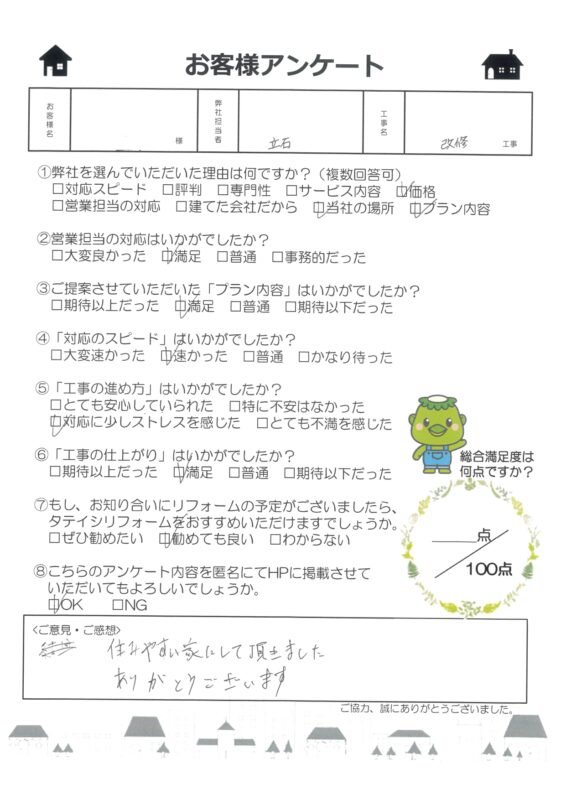 お客様アンケート
お客様名 様 弊社担当者 立石 工事名 改修 工事
①弊社を選んでいただいた理由は何ですか？（複数回答可）
□対応スピード □評判 □専門性 □サービス内容 ☑価格
□営業担当の対応 □建てた会社だから ☑当社の場所 ☑プラン内容
②営業担当の対応はいかがでしたか？
□大変良かった ☑満足 □普通 □事務的だった
③ご提案させていただいた「プラン内容」はいかがでしたか？
□期待以上だった ☑満足 □普通 □期待以下だった
④「対応のスピード」はいかがでしたか？
□大変速かった ☑速かった □普通 □かなり待った
⑤「工事の進め方」はいかがでしたか？
□とても安心していられた □特に不安はなかった
☑対応に少しストレスを感じた □とても不満を感じた
⑥「工事の仕上がり」はいかがでしたか？
□期待以上だった ☑満足 □普通 □期待以下だった
総合満足度は
何点ですか？
⑦もし、お知り合いにリフォームの予定がございましたら、
タテイシリフォームをおすすめいただけますでしょうか。
□ぜひ勧めたい ☑勧めても良い □わからない
点
100点
⑧こちらのアンケート内容を匿名にてHPに掲載させて
いただいてもよろしいでしょうか。
☑OK □NG
<ご意見・ご感想>
住みやすい家にして頂きました
ありがとうございます
ご協力、誠にありがとうございました。